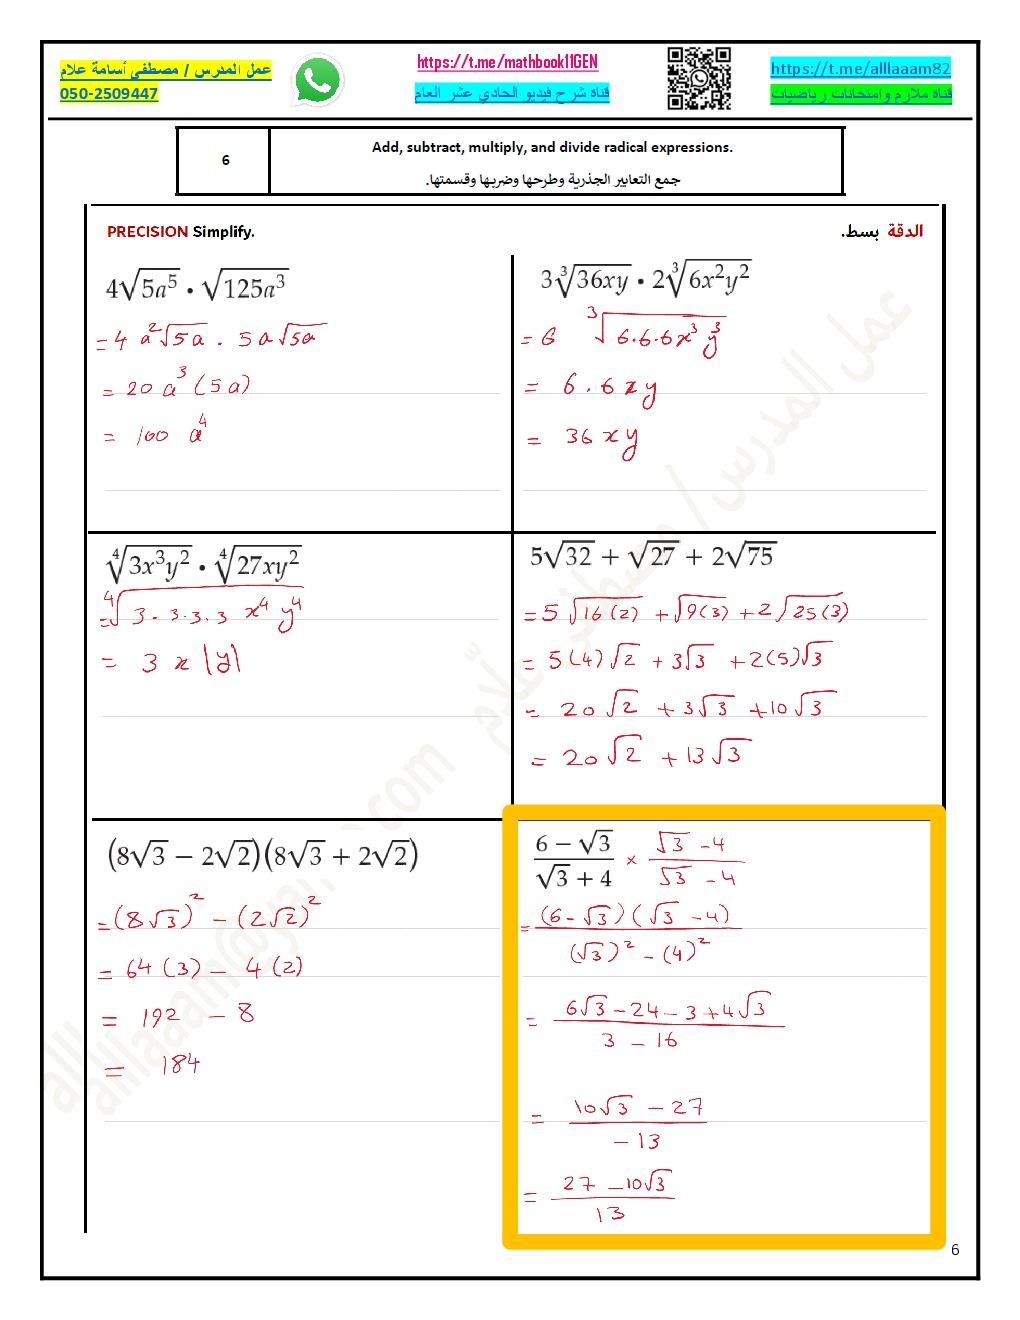 عمل المدرس / مصطفى أسامة علام
050-2509447
https://t.me/mathbook11GEN
قناة شرح فيديو الحادي عشر العام
https://t.me/alllaaam82
قناة ملازم وامتحانات رياضيات
6
Add, subtract, multiply, and divide radical expressions.
جمع التعابير الجذرية وطرحها وضربها وقسمتها.
PRECISION Simplify.
الدقة بسط.
4√(5a⁵) • √(125a³)
= 4 a²√(5a) . 5a√(5a)
= 20 a³ (5a)
= 100 a⁴
3∛(36xy) • 2∛(6x²y²)
= 6 ∛(6.6.6x³y³)
= 6 . 6xy
= 36xy
∜(3x³y²) • ∜(27xy²)
= ∜(3 . 3.3.3 x⁴ y⁴)
= 3 x |y|
5√32 + √27 + 2√75
= 5√(16(2)) + √(9(3)) + 2√(25(3))
= 5(4)√2 + 3√3 + 2(5)√3
= 20√2 + 3√3 + 10√3
= 20√2 + 13√3
(8√3 − 2√2)(8√3 + 2√2)
= (8√3)² − (2√2)²
= 64(3) − 4(2)
= 192 − 8
= 184
(6 − √3)/(√3 + 4) × (√3 − 4)/(√3 − 4)
= (6 − √3)(√3 − 4)/((√3)² − (4)²)
= (6√3 − 24 − 3 + 4√3)/(3 − 16)
= (10√3 − 27)/(−13)
= (27 − 10√3)/13
عمل المدرس / مصطفى علام
6